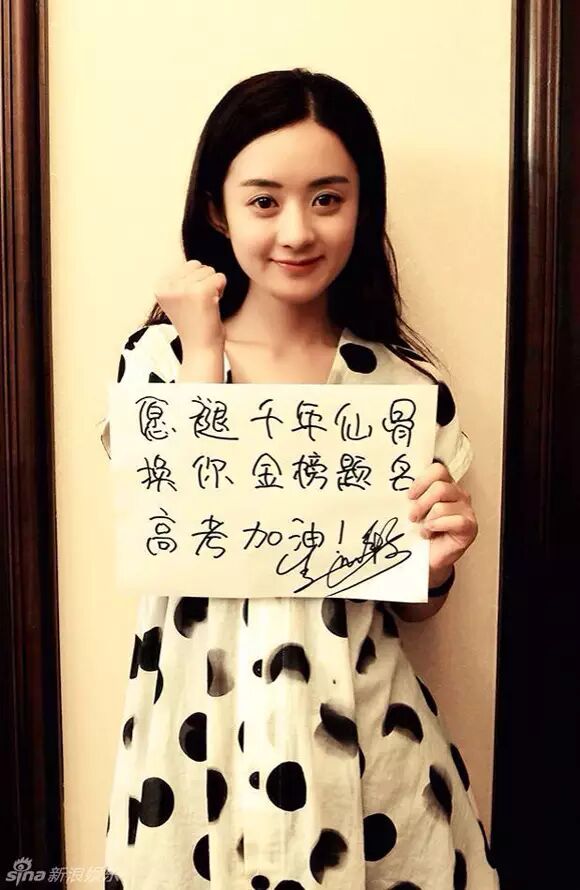 愿褪千年仙骨
换你金榜题名
高考加油！
sina新浪娱乐